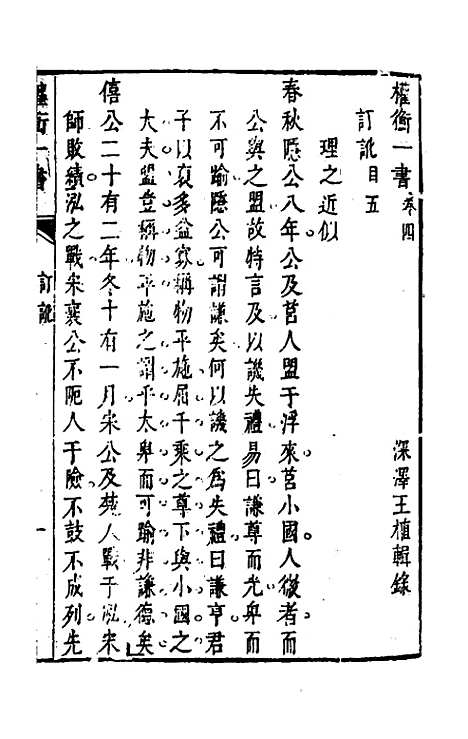 權衡一書 卷四 深澤王植輯錄
訂訛目五
理之近似
春秋隱公八年公及莒人盟于浮來莒小國人微者而
公與之盟故特言及以譏失禮易曰謙尊而光卑而
不可踰隱公可謂謙矣何以譏之爲失禮曰謙亨君
子以裒多益寡稱物平施屈千乘之尊下與小國之
大夫盟豈稱物平施之謂乎太卑而可踰非謙德矣
僖公二十有二年冬十有一月宋公及楚人戰于泓宋
師敗績泓之戰宋襄公不阨人于險不鼓不成列先
權衡一書 訂訛 一